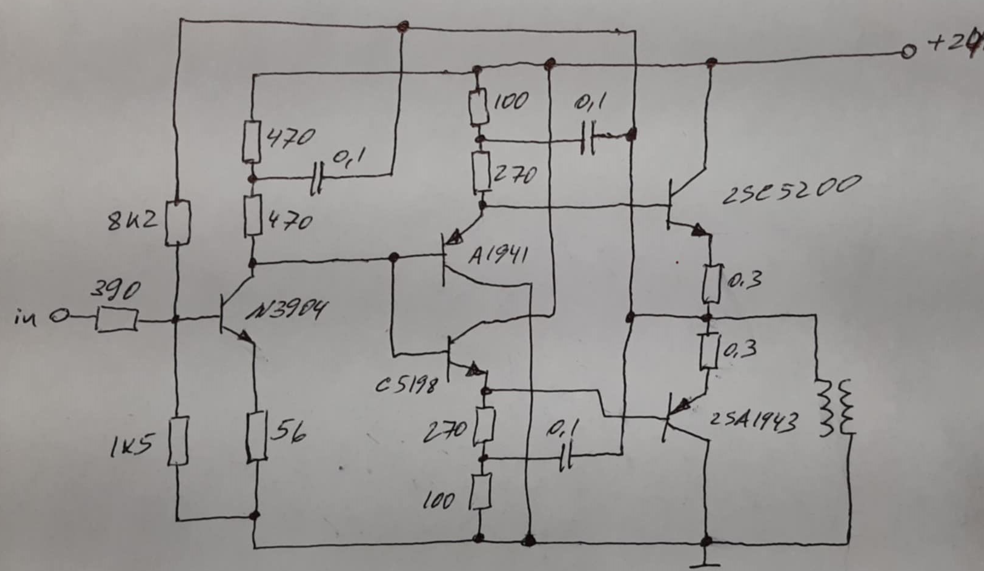 +24
100
0,1
470
0,1
270
2SC5200
8K2
470
A1941
390
0.3
in
N3904
0.3
C5198
2SA1943
1K5
56
270
0,1
100